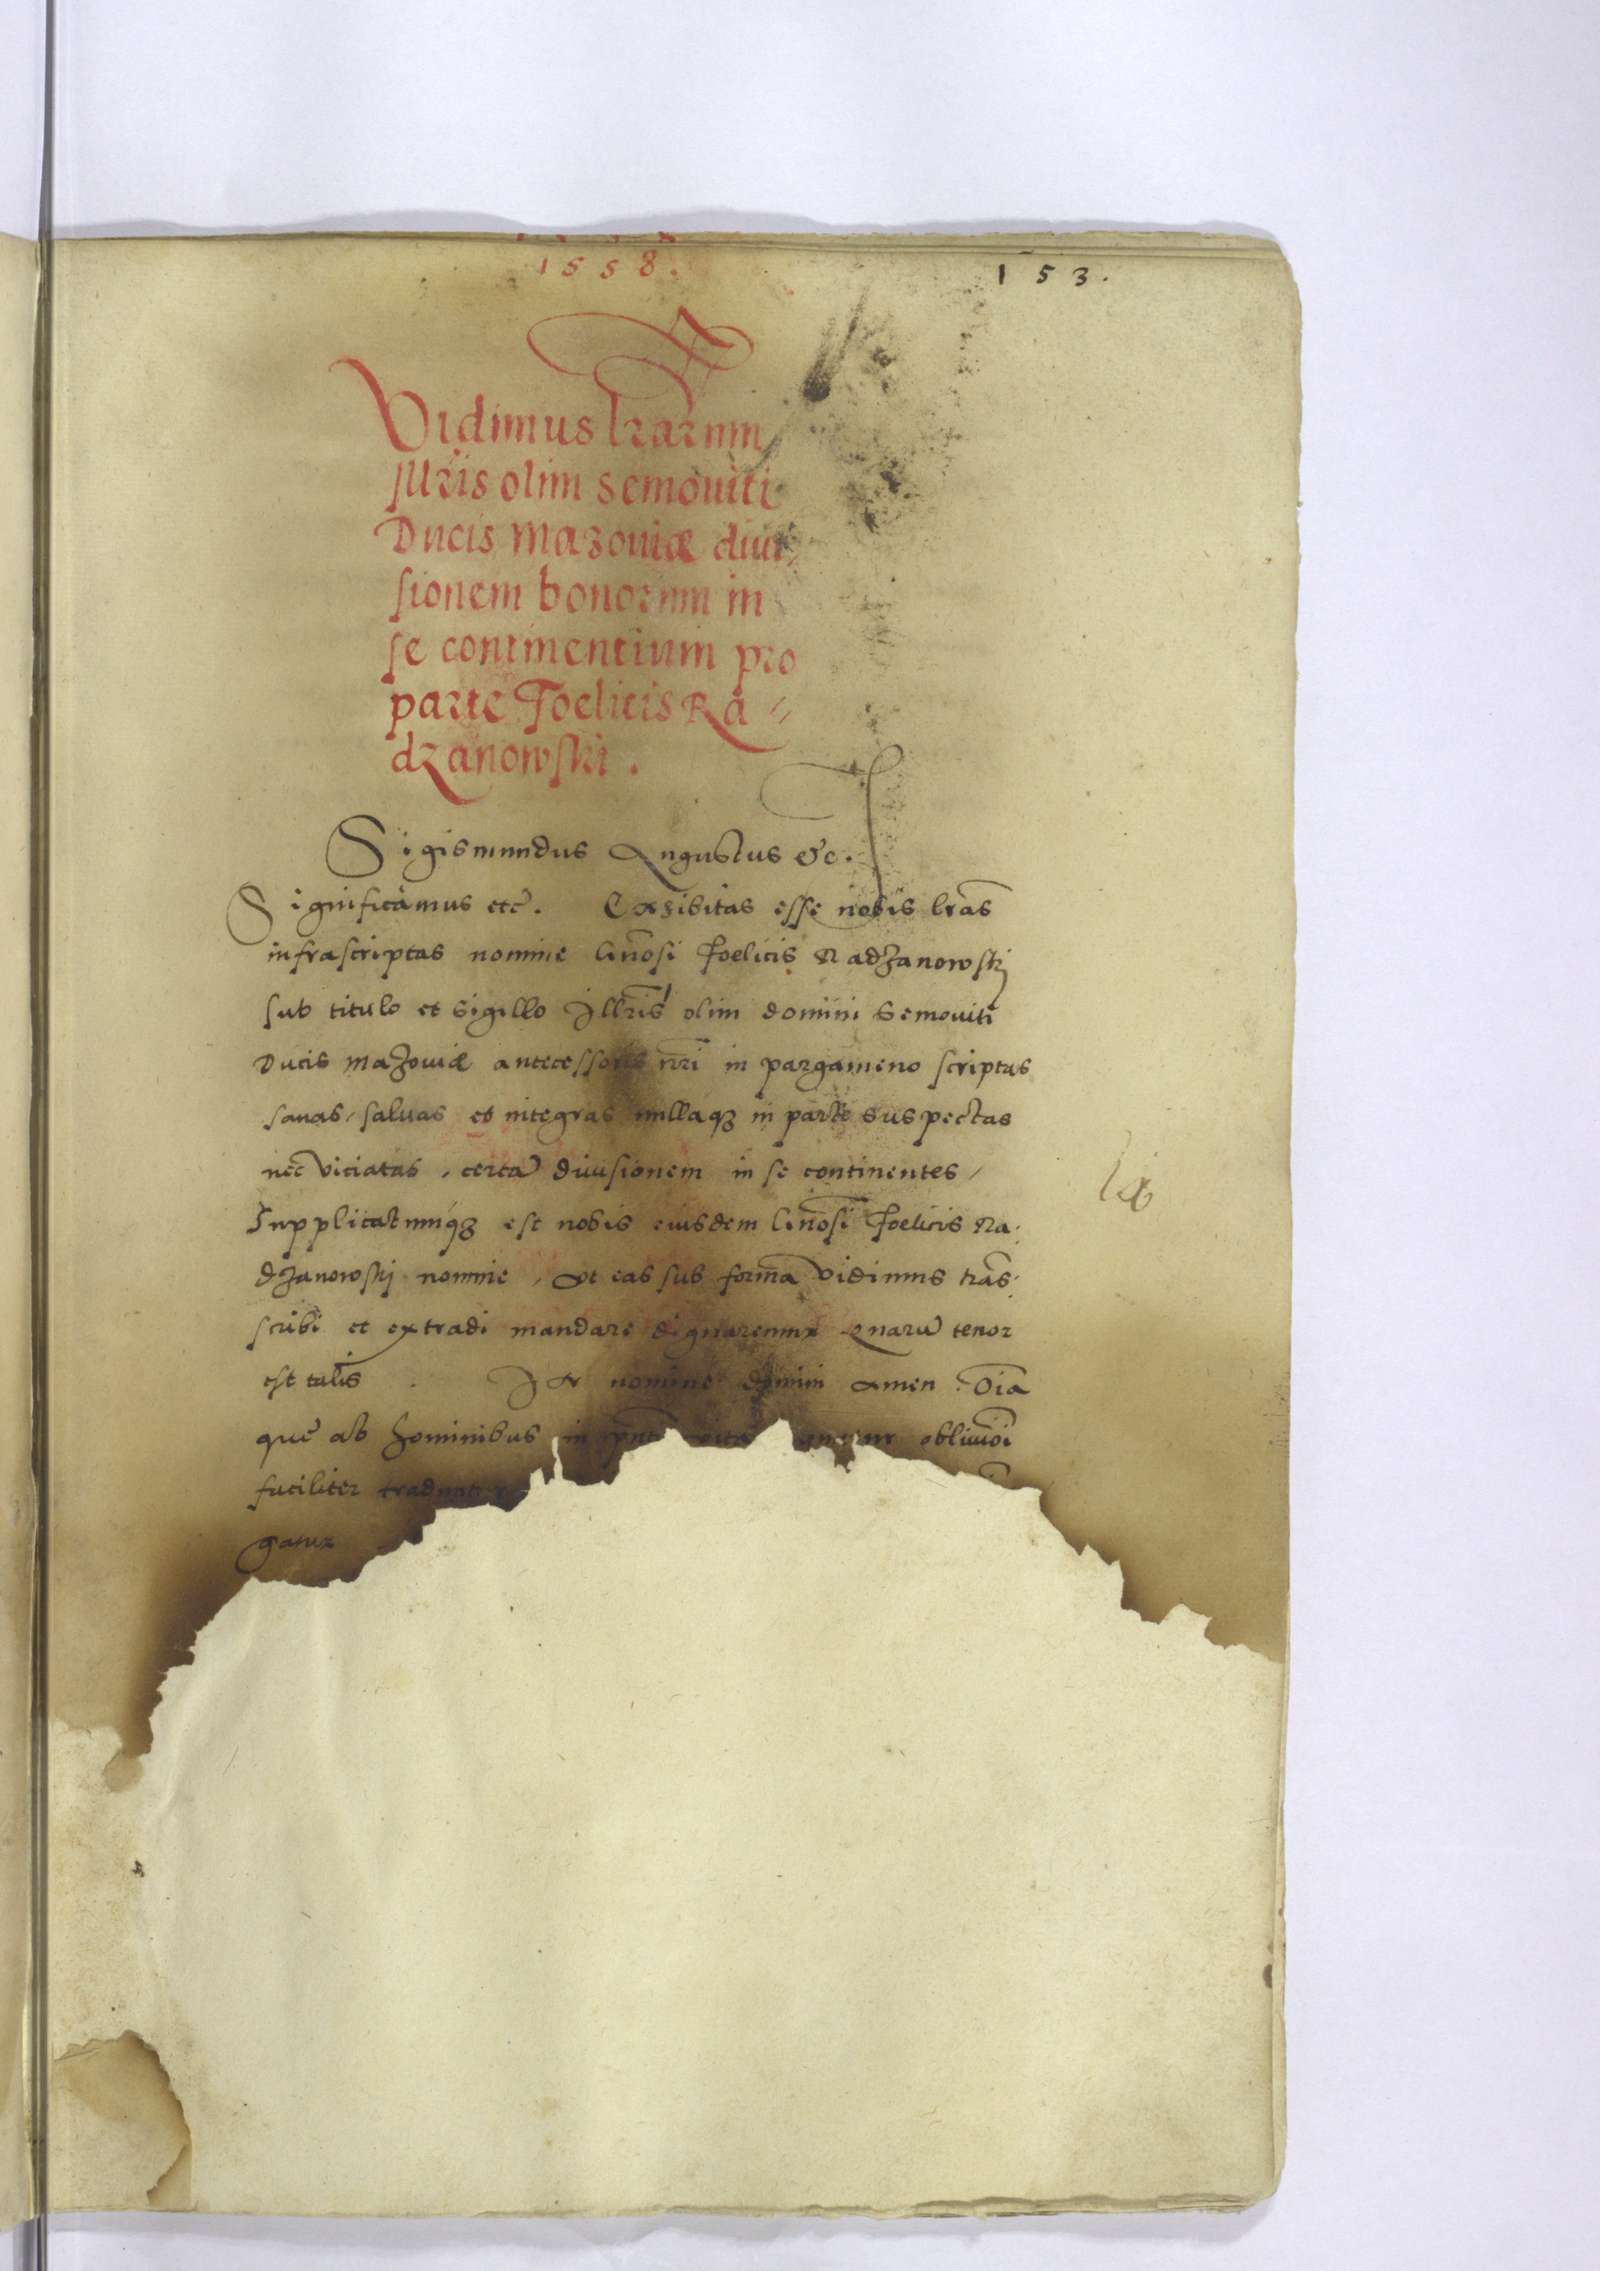 1558.
153.
Vidimus lrarum
Illris olim Semoviti
Ducis Mazoviæ divi
sionem bonorum in
se continentium pro
parte Foelicis Ra=
dzanowski.
Sigismundus Augustus &c.
Significamus etc. Exhibitas esse nobis lras
infrascriptas nomine Gnosi Foelicis Radzanowskj
sub titulo et sigillo Illris olim domini Semoviti
Ducis Mazoviæ antecessoris nri in pargameno scriptas
sanas, salvas et integras nullaq3 in parte suspectas
nec viciatas, certa divisionem in se continentes,
Supplicatumq3 est nobis eiusdem Gnosi Foelicis Ra.
dzanowskj nomine, ut eas sub forma vidimus tras.
scribi et extradi mandare dignaremur Quaru tenor
est talis. In nomine domini amen. Oia
que ab hominibus in oblivioi
faciliter
gatur